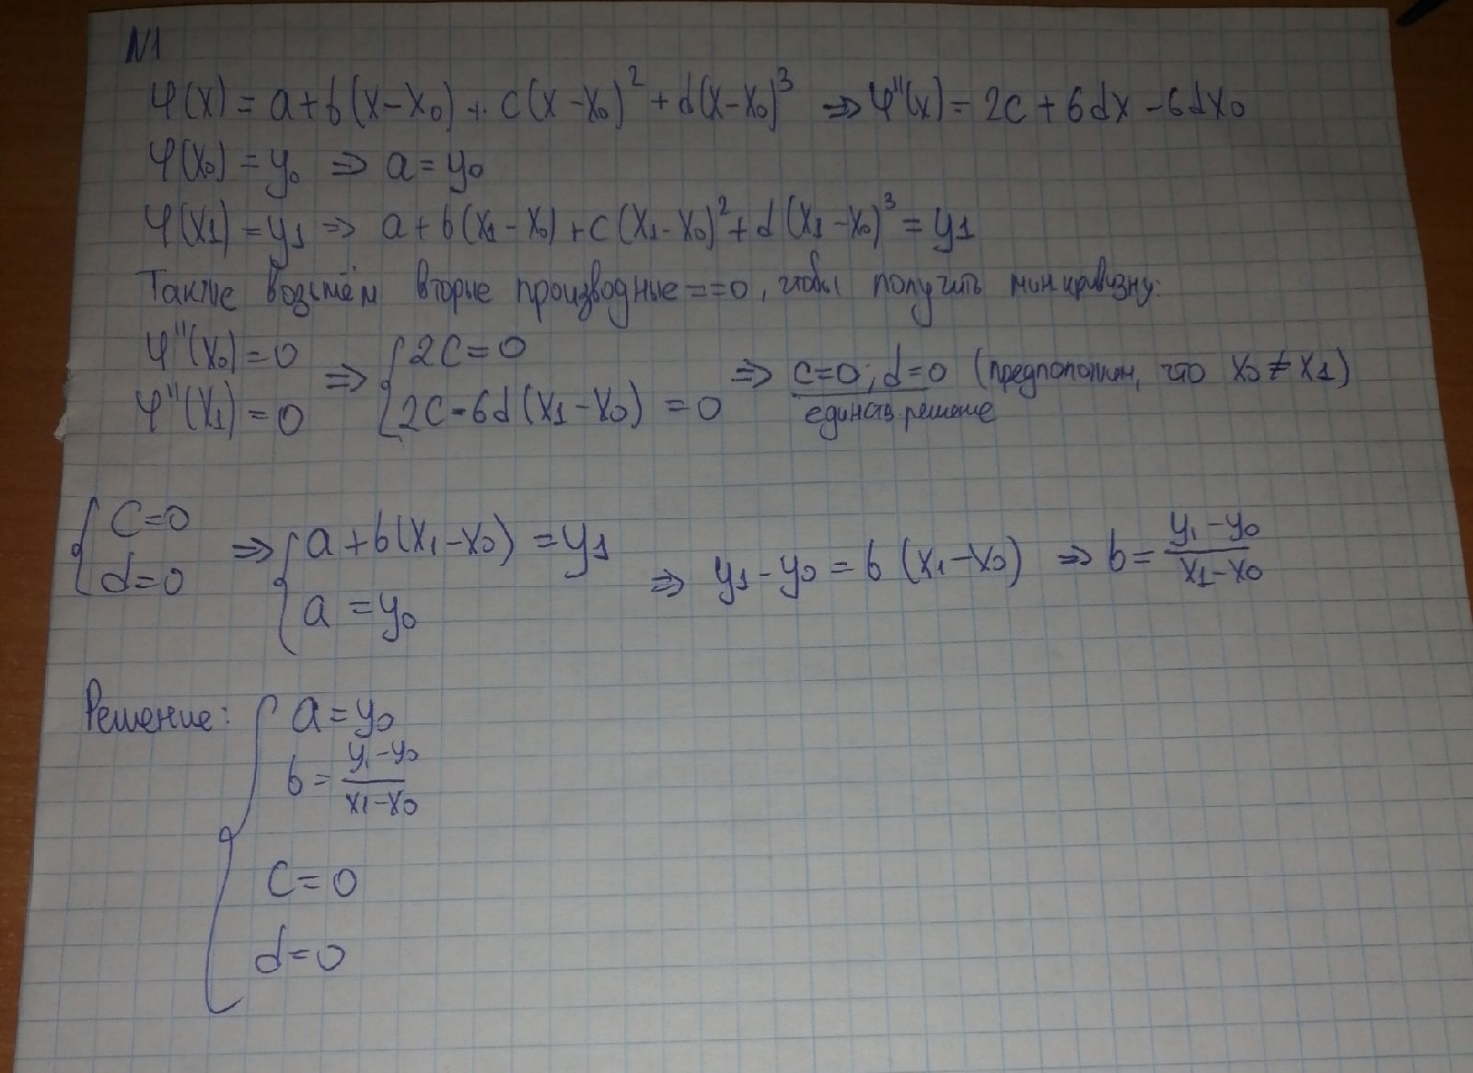 N1
φ(x) = a+b(x-x₀) + c(x-x₀)² + d(x-x₀)³ ⇒ φ''(x) = 2c + 6dx - 6dx₀
φ(x₀) = y₀ ⇒ a = y₀
φ(x₁) = y₁ ⇒ a + b(x₁-x₀) + c(x₁-x₀)² + d(x₁-x₀)³ = y₁
Также возьмём вторые производные ==0, чтобы получить мин кривизну:
φ''(x₀) = 0
φ''(x₁) = 0
⇒ { 2c = 0
2c - 6d(x₁-x₀) = 0
⇒ c=0; d=0 (предположим, что x₀ ≠ x₁)
единств. решение
{ c=0
d=0
⇒ { a + b(x₁-x₀) = y₁
a = y₀
⇒ y₁ - y₀ = b (x₁-x₀) ⇒ b = (y₁-y₀)/(x₁-x₀)
Решение: { a = y₀
b = (y₁-y₀)/(x₁-x₀)
c = 0
d = 0